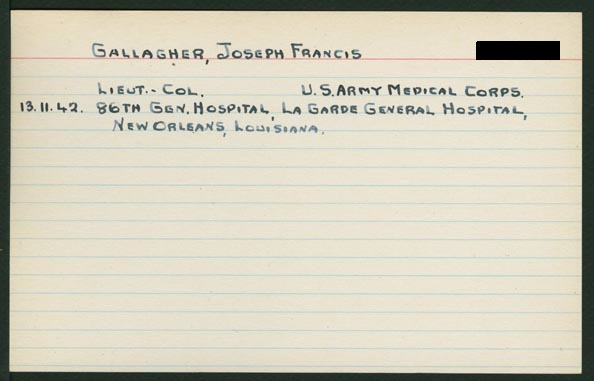 GALLAGHER, JOSEPH FRANCIS
LIEUT.- COL. U.S. ARMY MEDICAL CORPS.
13.11.42. 86TH GEN. HOSPITAL, LA GARDE GENERAL HOSPITAL,
NEW ORLEANS, LOUISIANA.